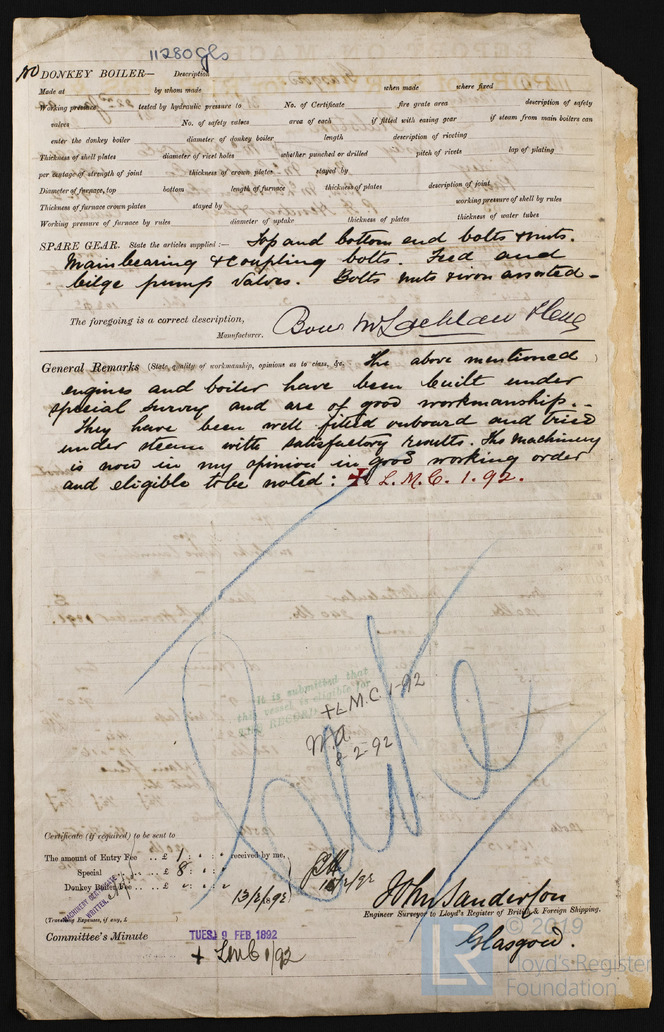 11280 gls
No DONKEY BOILER— Description
Made at by whom made when made where fixed
Working pressure tested by hydraulic pressure to No. of Certificate fire grate area description of safety
valves No. of safety valves area of each if fitted with easing gear if steam from main boilers can
enter the donkey boiler diameter of donkey boiler length description of riveting
Thickness of shell plates diameter of rivet holes whether punched or drilled pitch of rivets lap of plating
per centage of strength of joint thickness of crown plates stayed by
Diameter of furnace, top bottom length of furnace thickness of plates description of joint
Thickness of furnace crown plates stayed by working pressure of shell by rules
Working pressure of furnace by rules diameter of uptake thickness of plates thickness of water tubes
SPARE GEAR. State the articles supplied:— Top and bottom end bolts & nuts.
Main bearing & coupling bolts. Feed and
bilge pump valves. Bolts nuts & iron assorted –
The foregoing is a correct description,
Manufacturer. Bow McLachlan & Co
General Remarks (State quality of workmanship, opinions as to class, &c. The above mentioned
engines and boiler have been built under
special survey and are of good workmanship. –
They have been well fitted onboard and tried
under steam with satisfactory results. The machinery
is now in my opinion in good working order
and eligible to be noted: + L.M.C. 1.92.
late
It is submitted that
this vessel is eligible for
THE RECORD
+ L.M.C 1-92
M.A.
8 2-92
Certificate (if required) to be sent to
The amount of Entry Fee .. £ 1 : " : " received by me,
Special .. £ 8 : " : "
Donkey Boiler Fee .. £ " : " : "
13/2/92
MACHINERY CERTIFICATE
WRITTEN
(Travelling Expenses, if any, £ )
John Sanderson
Engineer Surveyor to Lloyd's Register of British & Foreign Shipping.
Glasgow.
Committee's Minute TUES. 9 FEB 1892
+ LMC 1/92
© 2019
LR
Lloyd's Register
Foundation